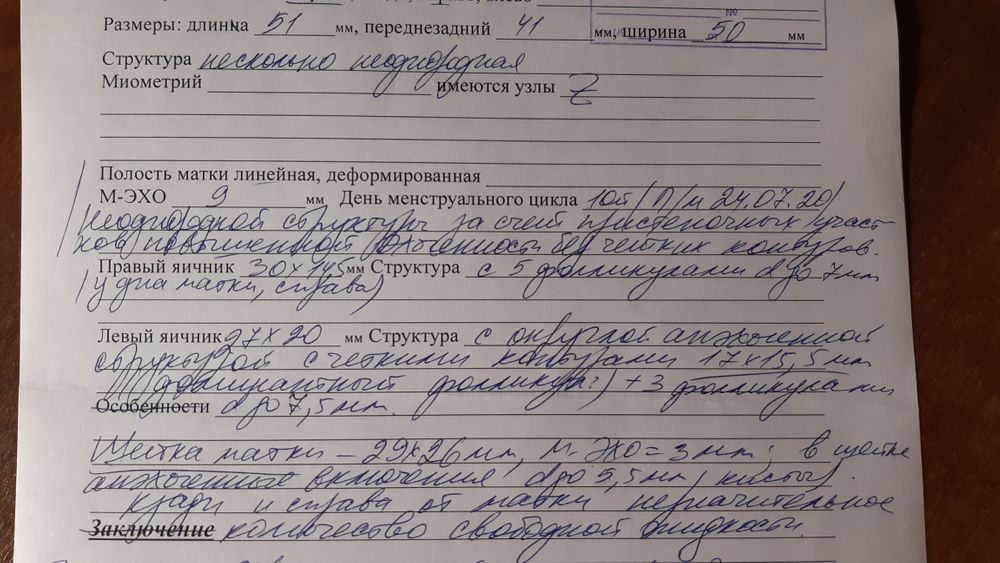 Размеры: длинна 51 мм, переднезадний 41 мм, ширина 50 мм
№
Структура несколько неоднородная
Миометрий имеются узлы Z
Полость матки линейная, деформированная
М-ЭХО 9 мм День менструального цикла 10й (П/м 24.07.20)
неоднородной структуры за счет пристеночных участ-
ков повышенной эхогенности без четких контуров.
Правый яичник 30х14,5 мм Структура с 5 фолликулами d до 7мм
у дна матки, справа)
Левый яичник 27х20 мм Структура с округлой анэхогенной
структурой с четкими контурами 17х15,5 мм
(доминантный фолликул) + 3 фолликула
Особенности d до 7,5 мм.
Шейка матки – 29х26 мм, м-эхо = 3 мм; в шейке
анэхогенные включения d до 5,5 мм (кисты)
кзади и справа от матки незначительное
Заключение количество свободной жидкости.